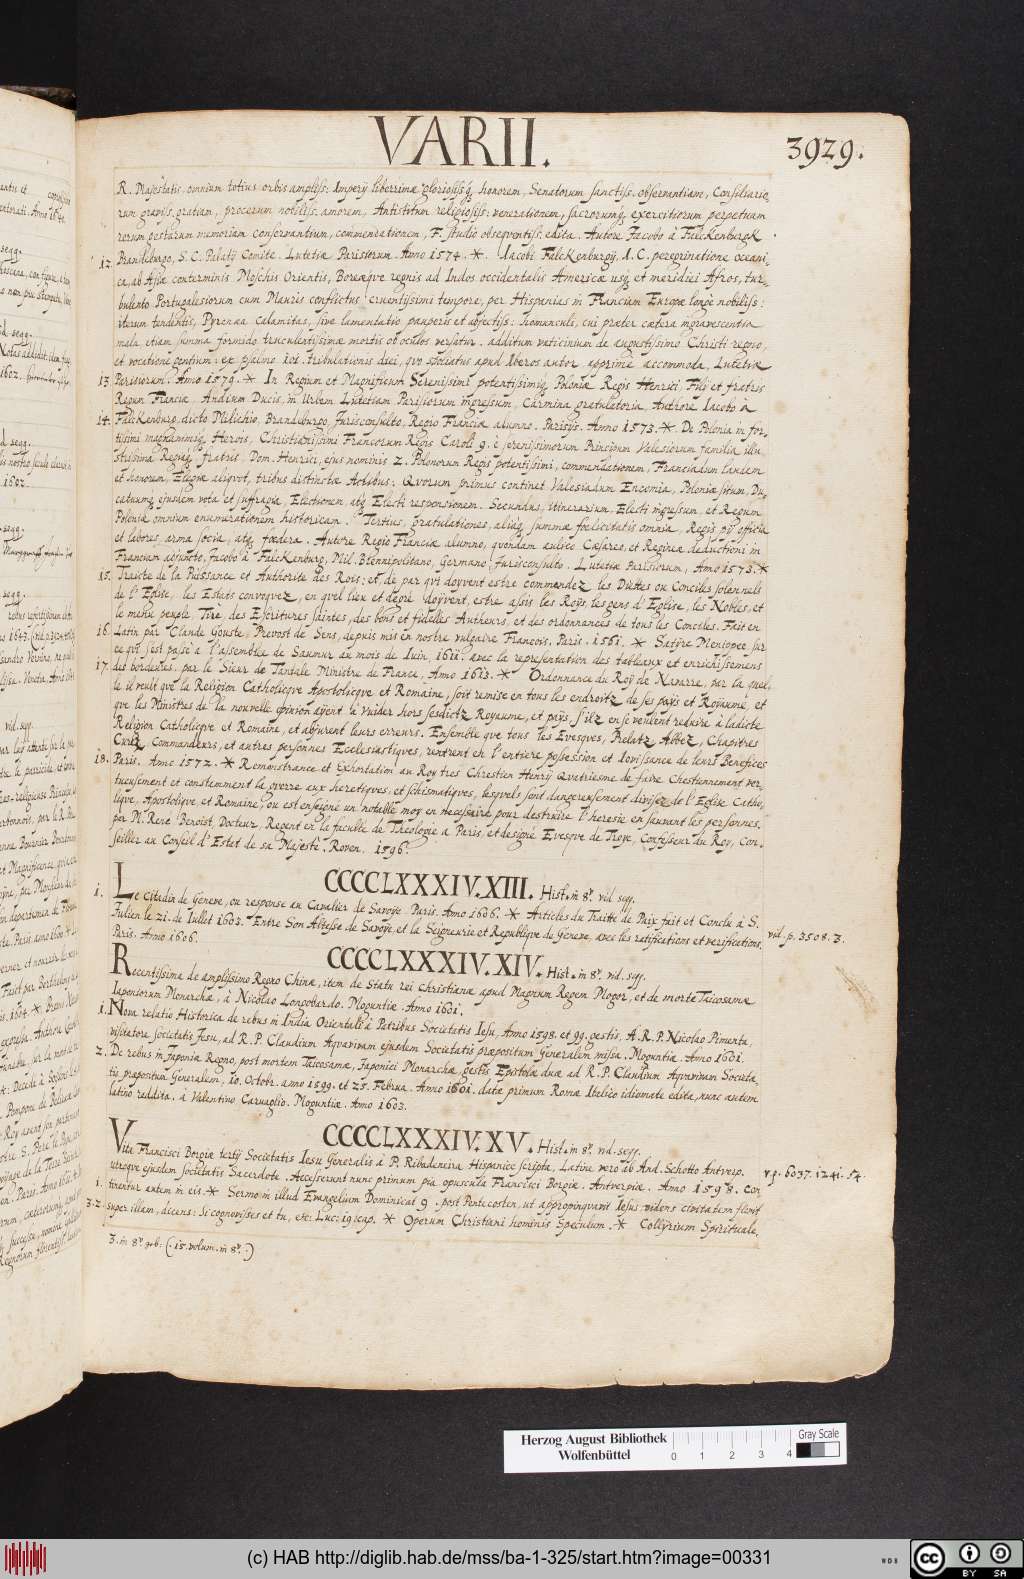 VARII.
3929.
R. Majestatis, omnium totius orbis ampliss. Imperÿ liberrimæ gloriosissq́, honorem, Senatorum sanctiss. observantiam, Consiliario
rum graviss. gratiam, procerum nobiliss. amorem, Antistitum religiosiss: venerationem, sacrorumq́ exercitiorum perpetuam
rerum gestarum memoriam conservantium, commemorationem, F. studio obsequentiss. edita. Autore Jacobo à Falckenburgk
Brandeburgo, S. C. Palatÿ Comite. Lutetiæ Parisiorum. Anno 1574. * 12. Iacobi Falckenburgÿ, I. C. peregrinatione oceani-
ca, ab Asiæ conterminis Moschis Orientis, Boreæqve regnis ad Indos occidentalis Americæ usq́ et meridiei Afros, tur-
bulento Portugalesiorum cum Mauris conflictus cruentissimi tempore, per Hispanias in Franciam Europæ longè nobiliss:
iterum tendentis, Pyrenæa calamitas, sive lamentatio pauperis et abjectiss: homunculi, cui præter cætera ingravescentia
mala etiam summa formido truculentissimæ mortis ob oculos versatur. additum vaticinium de augustissimo Christi regno,
et vocatione gentium: ex psalmo tribulationis diei, quo spociatus apud Iberos autor apprimè accommoda. Lutetiæ
Parisiorum. Anno 1579. * 13. In Regium et Magnificum Serenissimi potentissimiq́ Poloniæ Regis Henrici, Filÿ et fratris
Regum Franciæ, Andium Ducis, in Urbem Lutetiam Parisiorum ingressum, Carmina gratulatoria Authore Iacobo à
Falckenburg, dicto Milichio, Brandeburgo, Jurisconsulto, Regio Franciæ alumno. Parisÿs. Anno 1573. * 14. De Polonia in for-
tissimi magnanimiq́ Herois, Christianissimi Francorum Regis Caroli 9. è serenissimorum Principum Valesiorum familia, illu-
strissima Regiaq́ fratris, Dom. Henrici, ejus nominis 2. Polonorum Regis potentissimi, commendationem, Franciadum laudem
et honorem, Elegiæ aliquot, tribus distinctæ Actibus: Quorum primus continet Valesiadum Encomia, Poloniæ situm, Du-
catuumq́ ejusdem vota et suffragia, Electionem, atq́ Electi responsionem. Secundus, itinerarium, Electi ingressum, et Regum
Poloniæ omnium enumerationem historicam. Tertius, gratulationes, aliaq́ summæ fœlicitatis omnia, Regis pÿ officia
et labores, arma socia, atq́ fœdera. Autore Regio Franciæ alumno, quondam aulico Cæsareo, et Reginea deductioni in
Franciam adjuncto, Jacobo à Falckenburg, Mil. Brennipolitano, Germano, Jurisconsulto. Lutetiæ Parisiorum, Anno 1573. *
15. Traicte de la Puissance et Authorite des Rois: et, de par qvi doyvent estre commandez les Diettes ou Conciles solennels
de l'Eglise, les Estats convoquez, en qvel lieu et degré doyvent, estre assis les Roÿs, les gens d'Eglise, les Nobles, et
le menu peuple. Tiré des Escritures saintes, des bons et fidelles Autheurs, et des ordonnances de tous les Conciles. Fait en
Latin par Claude Gouste, Prevost de Sens, depuis mis en nostre vulgaire Francois. Paris. 1561. * 16. Satÿre Menippee sur
ce qvi s'est passé à l'assemblée de Saumur au mois de Iuin, 1611. avec la representation des tableaux et enrichissemens
des bordeures. par le Sieur de Tantale Ministre de France, Anno 1613. * 17. Ordonnance du Roÿ de Navarre, par la quel-
le il veult que la Religion Catholicqve Apostolicqve et Romaine, soit remise en tous les endroitz de ses paÿs et Royaume, et
que les Ministres de la nouvelle opinion aÿent à vuider hors sesdictz Royaume, et paÿs, s'ilz en se veulent reduire à ladicte
Religion Catholicqve et Romaine, et abjurent leurs erreurs. Ensemble que tous les Evesques, Prelatz, Abbez, Chapitres
Curez Commandeurs, et autres personnes Ecclesiastiqves, rentrent en l'entiere possession et jovissance de leurs Benefices
Paris. Anno 1572. * 18. Remonstrance et Exhortation au Roy tres Chrestien Henrÿ Quatriesme de faire Chestiennement ver-
tueusement et constemment la guerre aux heretiqves, et schismatiqves, lesqvels sont dangereusement divisez de l'Eglise Catho-
lique, Apostolique et Romaine, ou est enseigné un notable moy en necessaire pour destruire l'heresie en sauvant les personnes.
par M. René Benoist Docteur, Regent en la faculté de Theologie a Paris, et designé Evesqve de Troye, Confesseur du Roy, Con-
seiller au Conseil d'Estat de sa Majesté. Roven. 1596.
CCCCLXXXIV.XIII. Hist. in 8º. vid. segg.
1. Le Citadin de Geneve, ou response au Cavalier de Savoye. Paris. Anno 1606. * Articles du Traitte de Paix fait et Conclu à S.
Julien le 21. de Iullet 1603. Entre Son Altesse de Savoye, et la Seigneurie et Republique de Geneve, avec les ratifications et verifications.
vid. p. 3508. 3.
Paris. Anno 1606.
CCCCLXXXIV.XIV. Hist. in 8º. vid. segg.
Recentissima de amplissimo Regno China, item de Statu rei christianæ apud Magnum Regem Mogor, et de morte Taicosamæ
Iaponiorum Monarchæ, à Nicolao Longobardo. Moguntiæ. Anno 1601.
1. Nova relatio Historica de rebus in India Orientali à Patribus Societatis Iesu, Anno 1598. et 99. gestis, A. R. P. Nicolao Pimenta,
visitatore, societatis Jesu, ad R. P. Claudium Aquavivam ejusdem Societatis præpositum Generalem missa. Moguntiæ. Anno 1601.
2. De rebus in Japoniæ Regno, post mortem Taicosamæ, Japonici Monarchæ gestis Epistolæ duæ ad R. P. Claudium Aquavivam Societa-
tis præpositum Generalem, 10. Octobr. anno 1599. et 25. Februa. Anno 1601. datæ primum Romæ Italico idiomate edita, nunc autem
latino reddita. à Valentino Carvaglio. Moguntiæ. Anno 1603.
CCCCLXXXIV.XV. Hist. in 8º. vid. segg.
Vita Francisci Borgiæ tertÿ Societatis Iesu Generalis à P. Ribadeneira Hispanice scripta, Latine vero ab And. Schotto Antverp.
v. p. 6037. 1241. 54.
utroqve ejusdem societatis Sacerdote. Accesserunt nunc primum pia opuscula Francisci Borgiæ. Antverpiæ. Anno 1598. Con
1. tinentur autem in eis. * Sermo in illud Evangelium Dominicæ 9. post Pentecosten, ut appropinquavit Iesus, videns civitatem flevit
3. 2. super illam, dicens: Si cognovisses et tu, etc. Luc: 19 cap. * Operum Christiani hominis Speculum. * Collÿrium Spirituale,
3. in 8º.
(. 15. volum. in 8º. .)
Herzog August Bibliothek
Wolfenbüttel
0 1 2 3 4
Gray Scale
(c) HAB http://diglib.hab.de/mss/ba-1-325/start.htm?image=00331
WDB
cc
BY SA